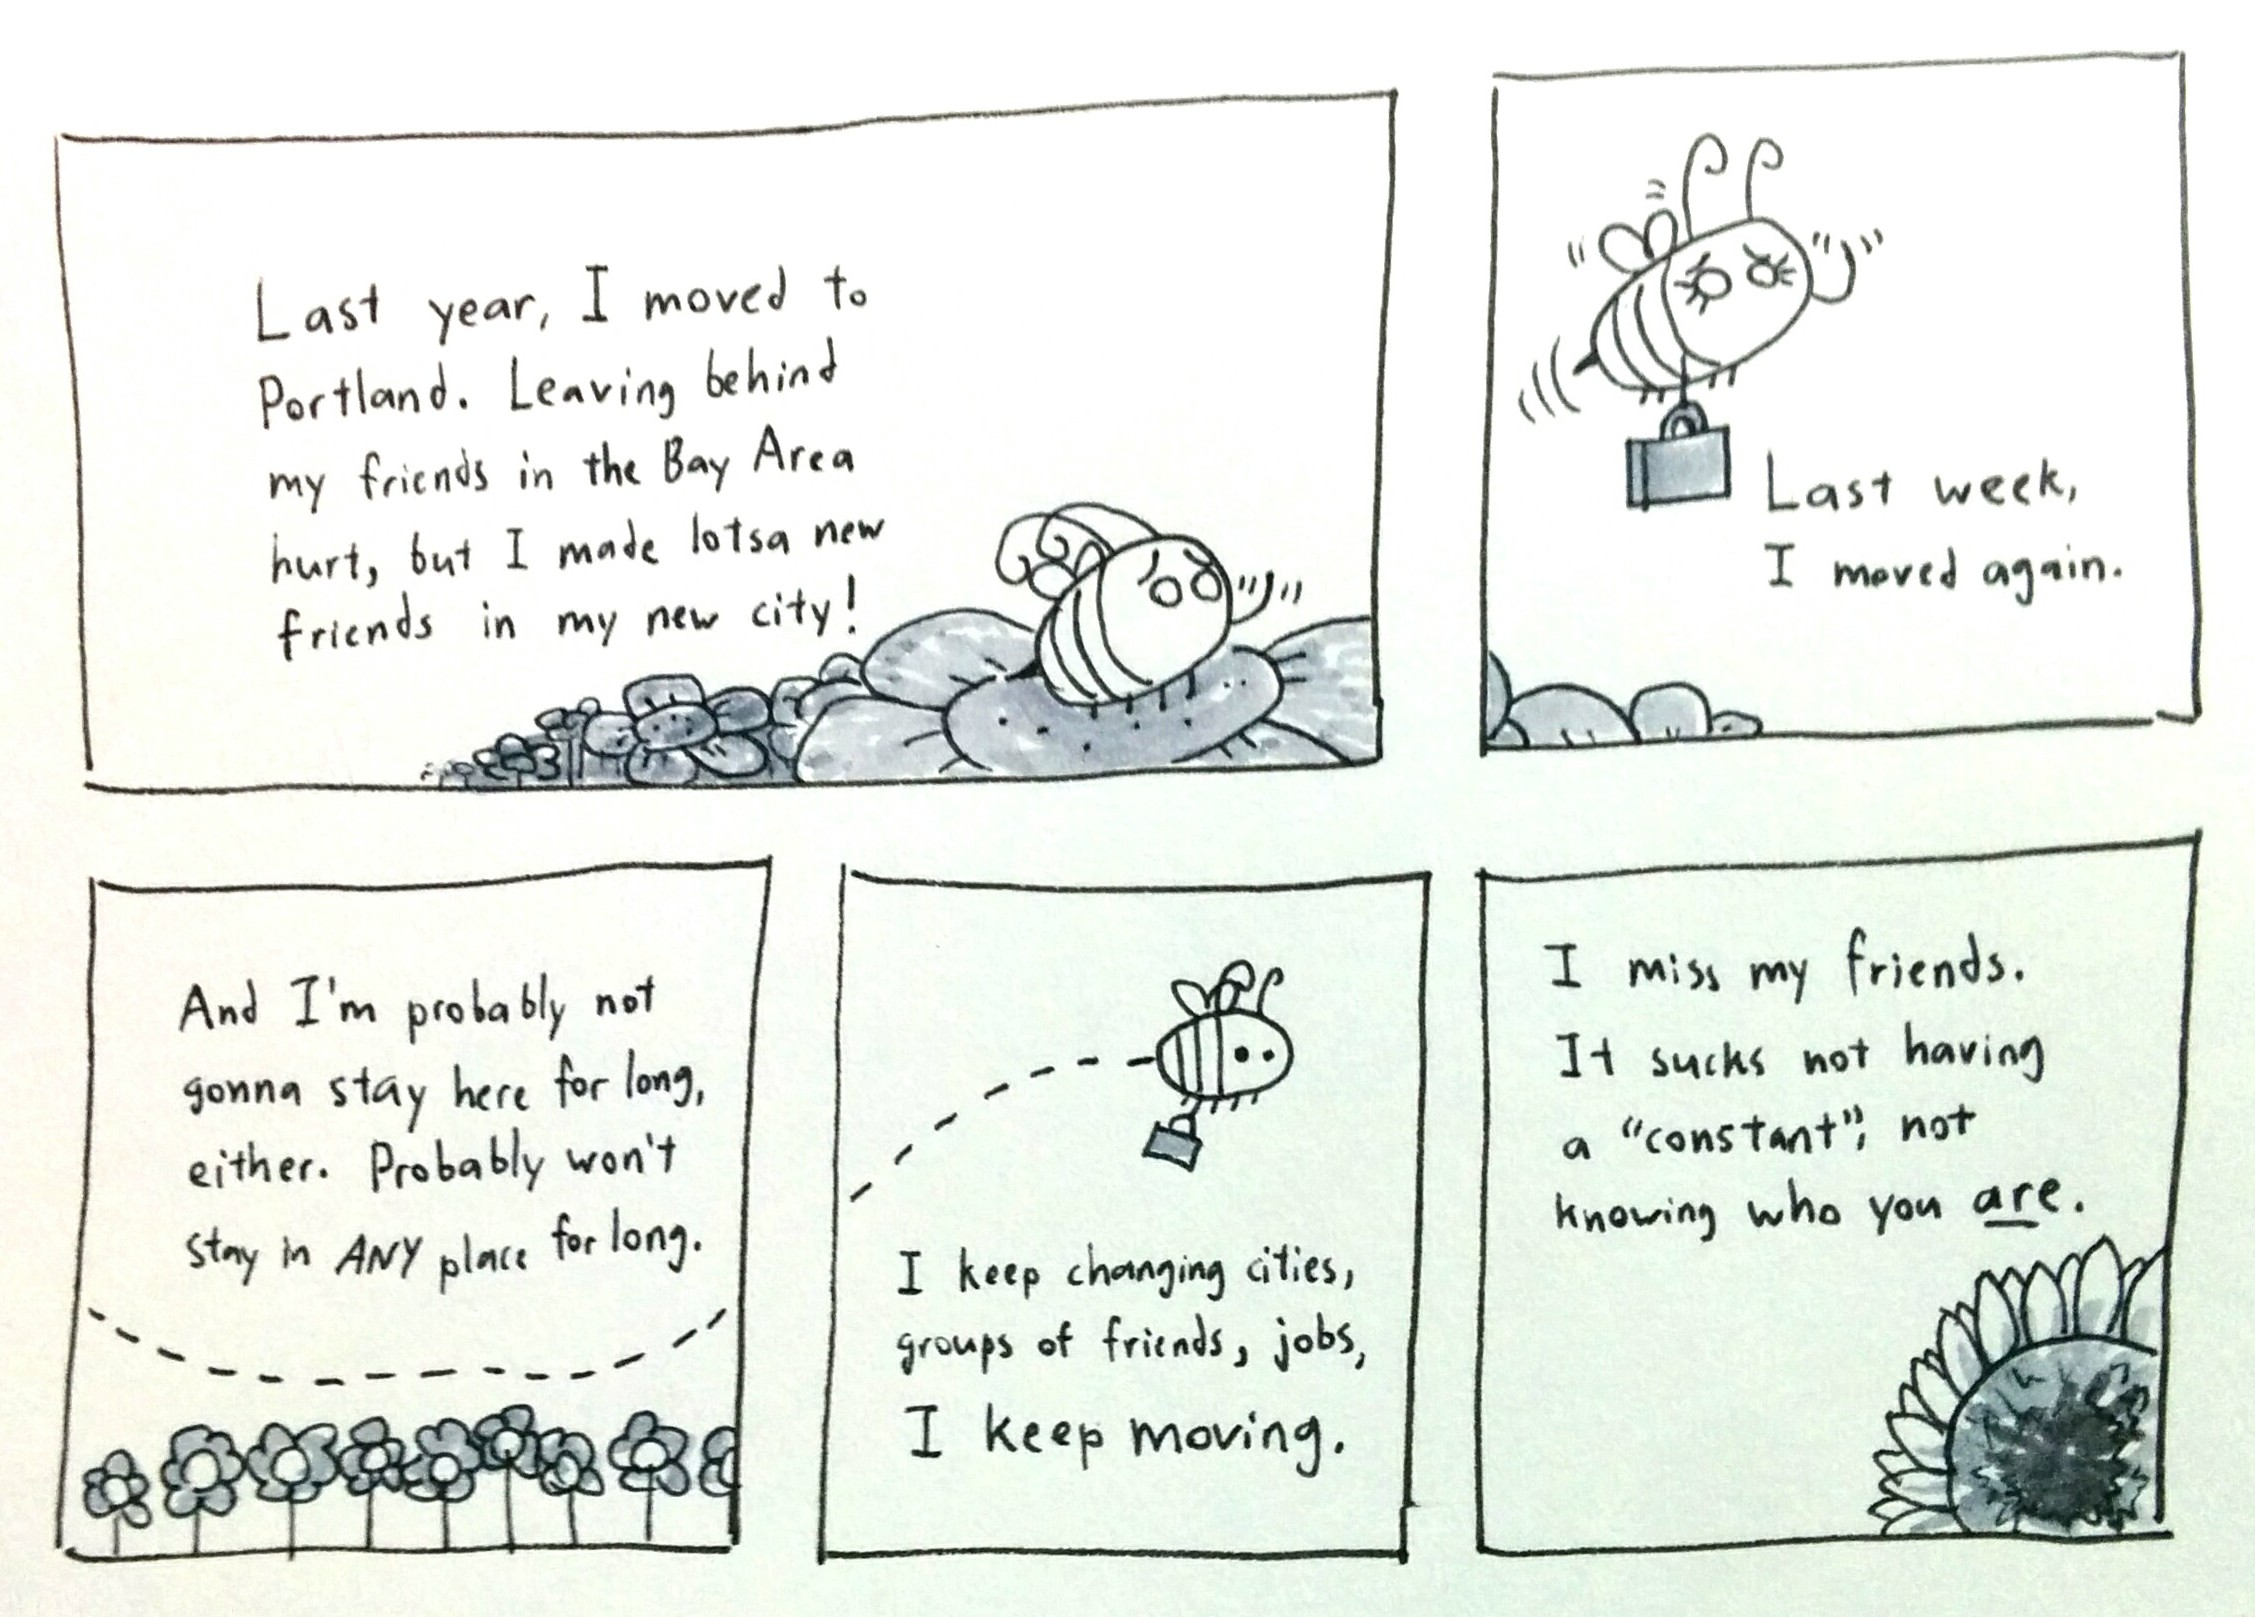 Last year, I moved to
Portland. Leaving behind
my friends in the Bay Area
hurt, but I made lotsa new
friends in my new city!
Last week,
I moved again.
And I'm probably not
gonna stay here for long,
either. Probably won't
stay in ANY place for long.
I keep changing cities,
groups of friends, jobs,
I keep moving.
I miss my friends.
It sucks not having
a "constant", not
knowing who you are.